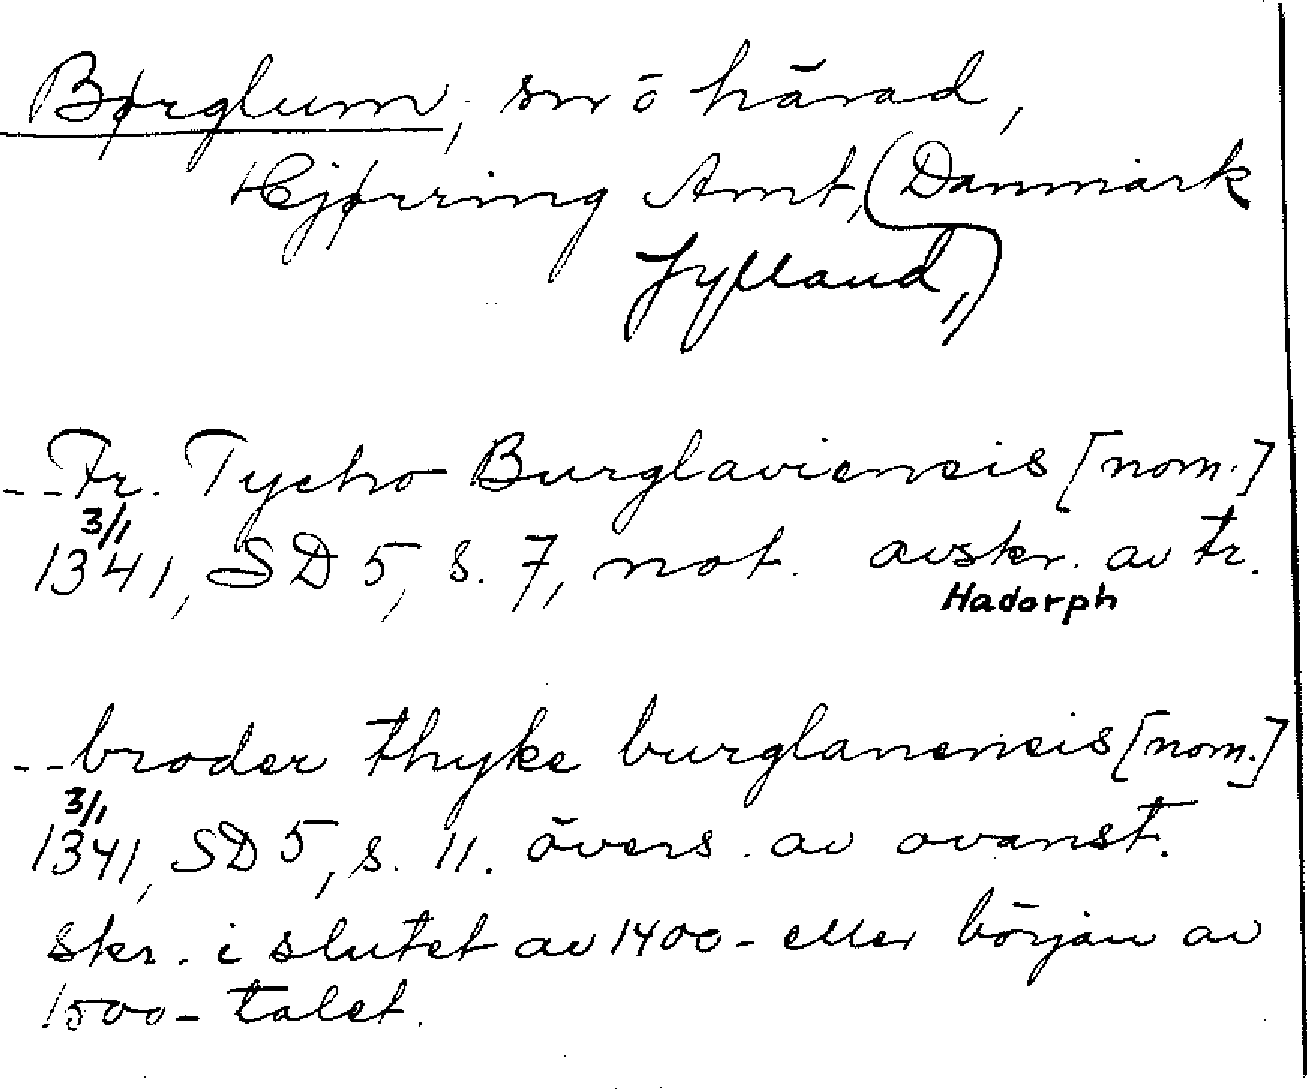 Børglum, sn o härad,
Hjørring Amt, (Danmark
Jylland,)
--Fr. Tycho Burglaviensis [nom.]
3/1
1341, SD 5, s. 7, not. avskr. av fr.
Hadorph
--broder thyke burglanensis [nom.]
3/1
1341, SD 5, s. 11. övers. av ovanst.
skr. i slutet av 1400- eller början av
1500-talet.